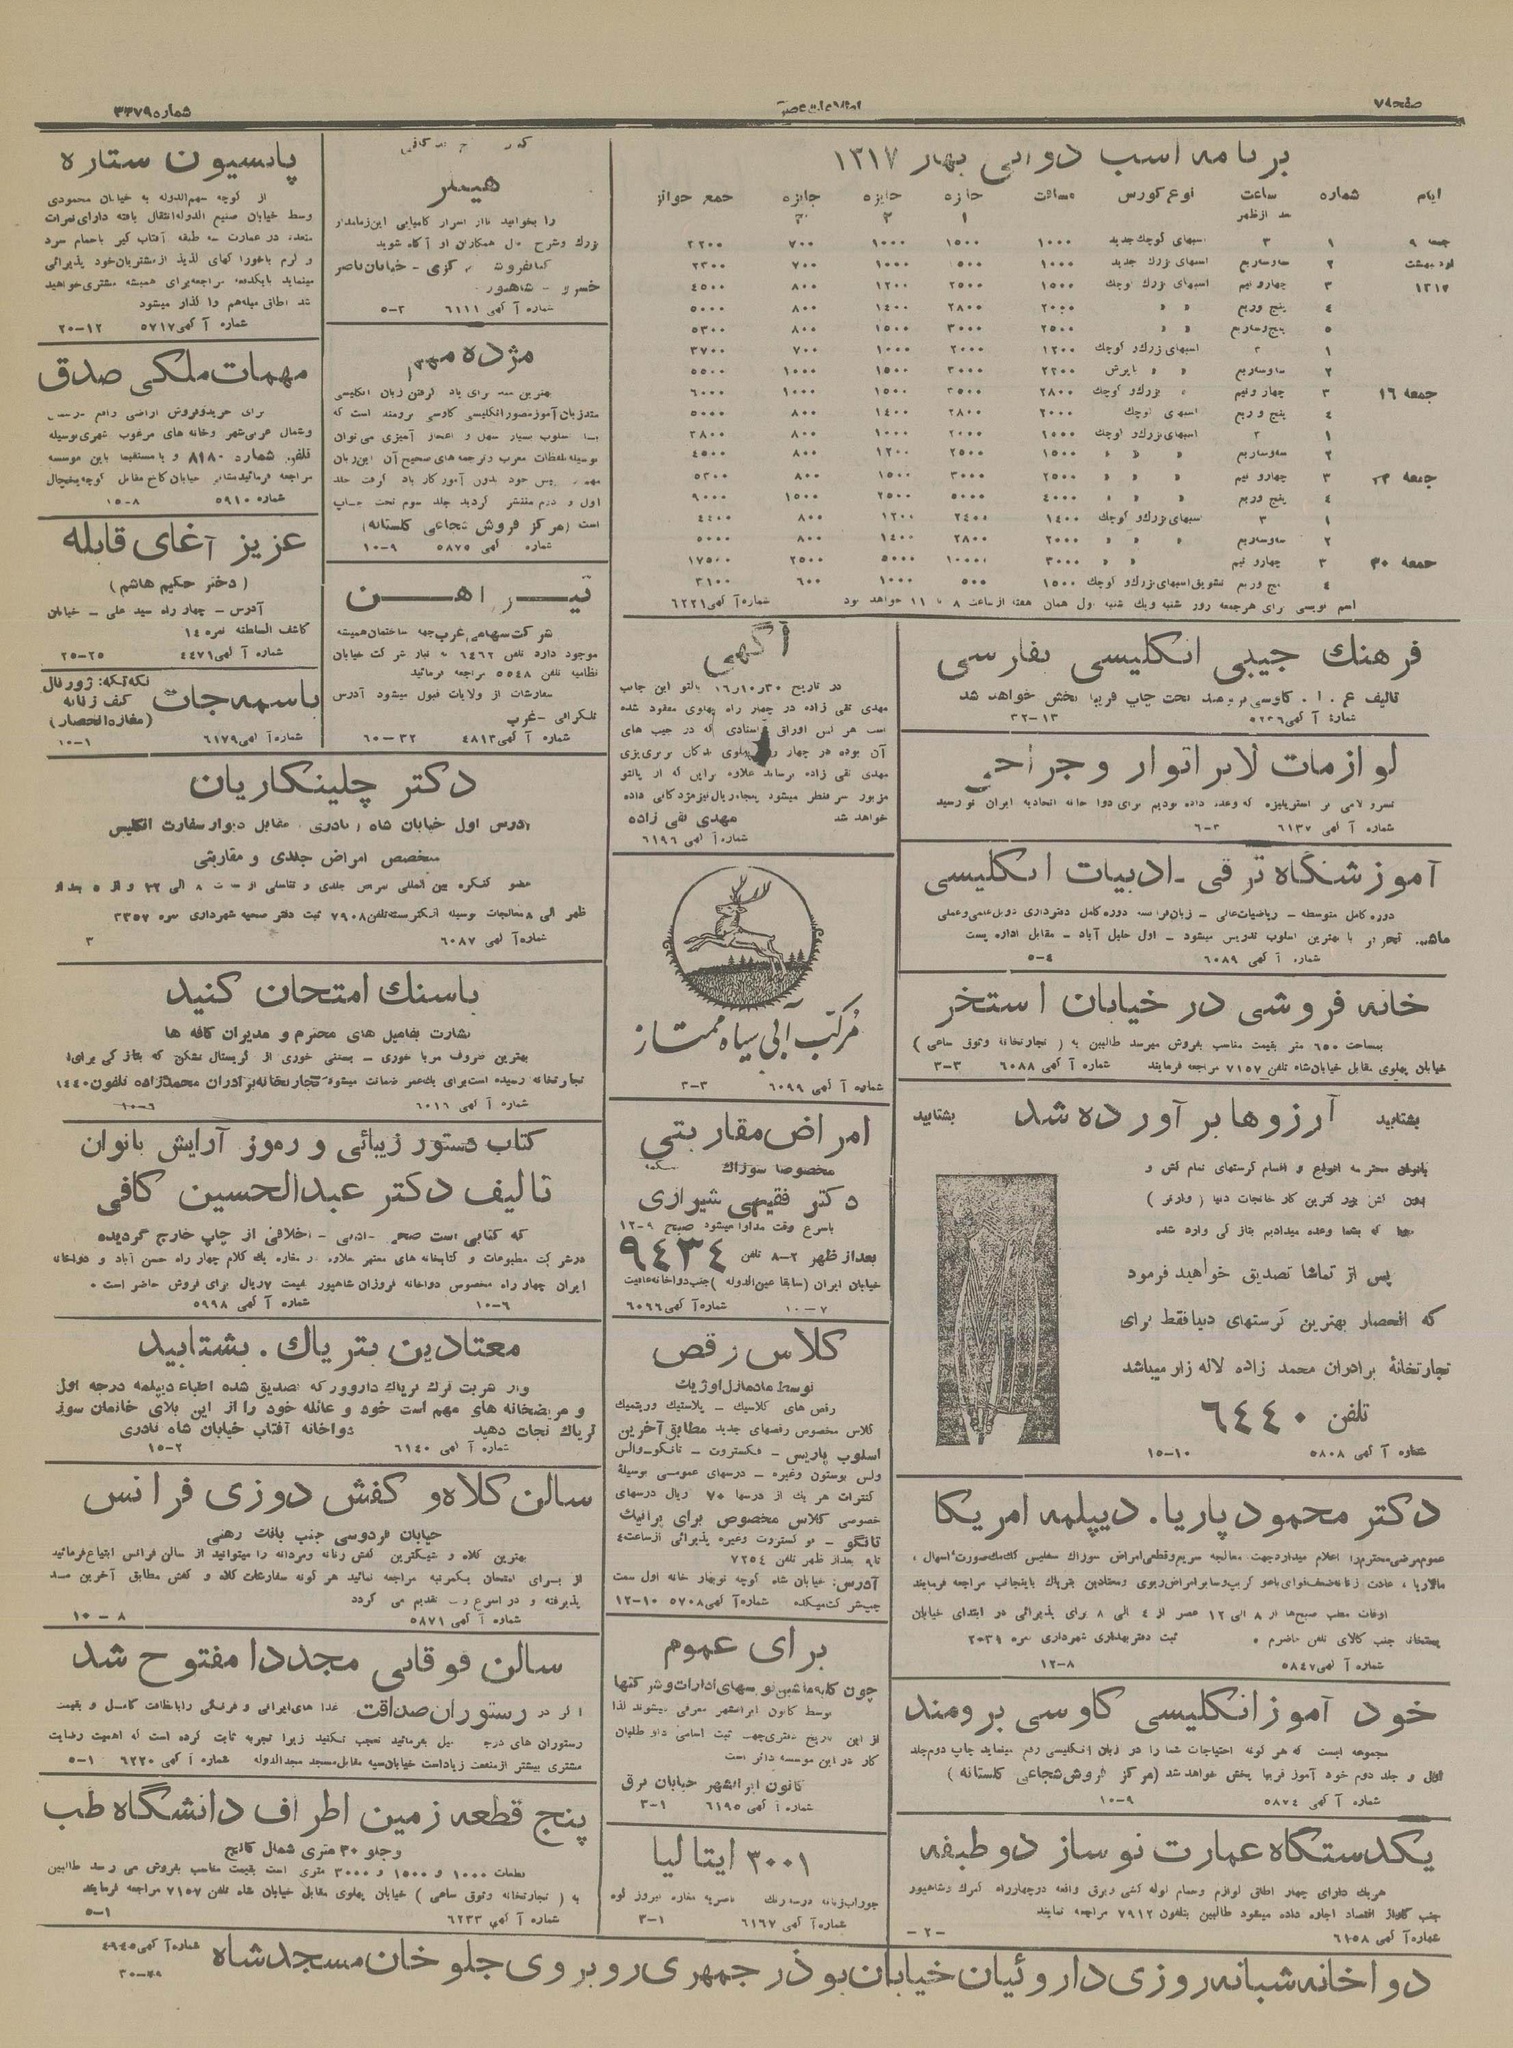 صفحه ۷
شماره ۳۳۷۹
برنامه اسب دوانی بهار ۱۳۱۷
ایام شماره ساعت نوع کورس مسافت جایزه جایزه جایزه جمع جوائز
بعد از ظهر ۱ ۲ ۳
جمعه ۹ ۱ ۳ اسبهای کوچك جدید ۱۰۰۰ ۱۵۰۰ ۱۰۰۰ ۷۰۰
۲ سه‌وربع اسبهای بزرك جدید ۱۰۰۰ ۱۰۰۰ ۷۰۰
۱۳۱۷ ۳ چهارونیم اسبهای بزرك و کوچك ۱۵۰۰ ۲۵۰۰ ۱۲۰۰ ۸۰۰ ۴۵۰۰
۴ پنج وربع « « ۲۰۰۰ ۲۸۰۰ ۱۴۰۰ ۸۰۰ ۵۰۰۰
۵ « « ۲۵۰۰ ۳۰۰۰ ۱۵۰۰ ۸۰۰ ۵۳۰۰
۱ اسبهای بزرك و کوچك ۱۲۰۰ ۲۰۰۰ ۱۰۰۰ ۷۰۰ ۳۷۰۰
۲ « « ۳۰۰۰ ۱۵۰۰ ۱۰۰۰ ۵۵۰۰
جمعه ۱۶ ۳ چهار ونیم « بزرك و کوچك ۲۸۰۰ ۳۵۰۰ ۱۵۰۰ ۱۰۰۰ ۶۰۰۰
۴ پنج و ربع اسبهای کوچك ۲۰۰۰ ۲۸۰۰ ۱۴۰۰ ۸۰۰ ۵۰۰۰
۱ اسبهای بزرك و کوچك ۱۵۰۰ ۲۰۰۰ ۱۰۰۰ ۸۰۰ ۳۸۰۰
۲ « « « ۱۵۰۰ ۲۵۰۰ ۱۲۰۰ ۸۰۰ ۴۵۰۰
جمعه ۲۳ ۳ چهارو نیم « « « ۲۵۰۰ ۳۰۰۰ ۱۵۰۰ ۸۰۰ ۵۳۰۰
۴ پنج وربع « « « ۴۰۰۰ ۵۰۰۰ ۲۵۰۰ ۱۵۰۰ ۹۰۰۰
۱ ۳ اسبهای بزرك و کوچك ۱۴۰۰ ۲۴۰۰ ۱۲۰۰ ۸۰۰ ۴۴۰۰
۲ « « « ۲۰۰۰ ۲۸۰۰ ۱۴۰۰ ۸۰۰ ۵۰۰۰
جمعه ۳۰ ۳ چهارو نیم « « « ۳۰۰۰ ۱۰۰۰۰ ۵۰۰۰ ۲۵۰۰ ۱۷۵۰۰
۴ پنج وربع تشویق اسبهای بزرك و کوچك ۱۵۰۰ ۱۰۰۰ ۶۰۰ ۳۱۰۰
اسم نویسی برای هرجمعه روز شنبه ویك شنبه اول همان هفته از ساعت ۸ تا ۱۱ خواهد بود شماره آگهی ۶۲۲۱
فرهنك جیبی انگلیسی بفارسی
تالیف ع . ا . کاوسی برومند تحت چاپ قریبا پخش خواهد شد
شماره آگهی ۵۲۳۶ ۱۳-۳۲
لوازمات لابراتوار وجراحی
که وعده داده بودیم برای دوا خانه اتحادیه ایران نو رسید
شماره آگهی ۶۱۳۷ ۳-۶
آموزشگاه ترقی - ادبیات انگلیسی
دوره کامل متوسطه - ریاضیات عالی - زبان فرانسه دوره کامل دفترداری دوبل علمی و عملی
با بهترین اسلوب تدریس میشود - اول خلیل آباد - مقابل اداره پست
شماره آگهی ۶۰۸۹ ۴-۵
خانه فروشی در خیابان استخر
بمساحت ۶۵۰ متر بقیمت مناسب بفروش میرسد طالبین به ( تجارتخانه وثوق ساعی )
خیابان پهلوی مقابل خیابان شاه تلفن ۷۱۵۷ مراجعه فرمایند شماره آگهی ۶۰۸۸ ۳-۳
بشتابید آرزوها بر آورده شد بشتابید
بانوان محترمه انواع و اقسام کرستهای تمام کش و
بدون کش بزرگترین کار خانجات دنیا ( وارنر )
که بشما وعده میدادیم بتازگی وارد شده
پس از تماشا تصدیق خواهید فرمود
که انحصار بهترین کرستهای دنیا فقط برای
تجارتخانهٔ برادران محمد زاده لاله زار میباشد
تلفن ۶۴۴۰
شماره آگهی ۵۸۰۸ ۱۰-۱۵
دکتر محمود پاریا . دیپلمه امریکا
عموم مرضی محترم را اعلام میدارد جهت معالجه سریع وقطعی امراض سوزاك سفلیس كك مك صورت اسهال ،
مالاریا ، عادت زنانه ضعف قوای باه و کریپ وسایر امراض ریوی ومعتادین بتریاك باینجانب مراجعه فرمایند
اوقات مطب صبح‌ها از ۸ الی ۱۲ عصر از ۴ الی ۸ برای پذیرائی در ابتدای خیابان
پستخانه جنب کالای ثبت دفتر بهداری شهرداری نمره ۲۰۳۱
شماره آگهی ۵۸۴۷ ۸-۱۲
خود آموز انگلیسی کاوسی برومند
مجموعه ایست که هر گونه احتیاجات شما را در زبان انگلیسی رفع مینماید چاپ دوم جلد
اول و جلد دوم خود آموز قریبا پخش خواهد شد (مرکز فروش شجاعی گلستانه)
شماره آگهی ۵۸۷۴ ۹-۱۰
یکدستگاه عمارت نوساز دو طبقه
هریك دارای چهار اطاق لوازم وحمام لوله کشی وبرق واقعه در چهارراه گمرك وشاهپور
جنب گاراژ اقتصاد اجاره داده میشود طالبین بتلفون ۷۹۱۲ مراجعه نمایند
شماره آگهی ۶۱۵۸ -۲-
آگهی
در تاریخ ۳۰ر۱۰ر۱۶ پالتو این جانب
مهدی تقی زاده در چهار راه پهلوی مفقود شده
است هر کس اوراق و اسنادی که در جیب های
آن بوده در چهار راه پهلوی دکان
مهدی تقی زاده برساند علاوه براین که از پالتو
مزبور صرفنظر میشود پنجاه ریال نیز مژدگانی داده
خواهد شد مهدی تقی زاده
شماره آگهی ۶۱۹۶
مرکب آبی سیاه ممتاز
شماره آگهی ۶۰۹۹ ۳-۳
امراض مقاربتی
مخصوصا سوزاك
دکتر فقیهی شیرازی
باسرع وقت مداوا میشود صبح ۹-۱۲
بعد از ظهر ۲-۸ تلفن ۹۴۳۴
خیابان ایران (سابقا عین الدوله) جنب دواخانه عافیت
شماره آگهی ۶۰۶۶ ۷-۱۰
کلاس رقص
توسط مادمازل اوژیك
رقص های کلاسیك - پلاستیك وریتمیك
کلاس مخصوص رقصهای جدید مطابق آخرین
اسلوب پاریس - فکستروت - تانگو - والس
ولس بوستون وغیره - درسهای عمومی بوسیلهٔ
کنترات هر یك از درسها ۷۰ ریال درسهای
خصوصی کلاس مخصوص برای پرانیك
تانگو - فوکستروت وغیره پذیرائی از ساعت ۴
تا ۹ بعد از ظهر تلفن ۷۲۵۴
آدرس: خیابان شاه کوچه نوبهار خانه اول سمت
چپ شرکت میکده شماره آگهی ۵۷۰۸ ۱۰-۱۲
برای عموم
چون کلیه ماشین نویسهای ادارات و شرکتها
توسط کانون ایرانشهر معرفی میشوند لذا
از این تاریخ دفتری جهت ثبت اسامی داوطلبان
کار در این موسسه دائر است
کانون ایرانشهر خیابان برق
شماره آگهی ۶۱۹۵ ۱-۳
۳۰۰۱ ایتالیا
جوراب زنانه ناصریه مغازه نیروز کوه
شماره آگهی ۶۱۶۷ ۱-۳
هیتلر
را بخوانید تا از اسرار کامیابی این زمامدار
بزرك وشرح حال همکاران او آگاه شوید
خیابان ناصر
خسرو - شاهپور
شماره آگهی ۶۱۱۱ ۳-۵
مژده مهم
برای یاد گرفتن زبان انگلیسی
متد زبان آموز مصور انگلیسی کاوسی برومند است که
با اسلوب بسیار سهل و اعجاز آمیزی می توان
بوسیله تلفظات معرب وترجمه های صحیح آن این زبان
خود بدون آموزگار یاد گرفت جلد
اول و دوم منتشر گردید جلد سوم تحت چاپ
است (مرکز فروش شجاعی گلستانه)
شماره آگهی ۵۸۷۵ ۹-۱۰
تیر آهن
شرکت سهامی غرب جهة ساختمان همیشه
موجود دارد تلفن ۶۴۶۲ انبار شرکت خیابان
نظامیه تلفن ۵۵۴۸ مراجعه فرمائید
سفارشات از ولایات قبول میشود آدرس
تلگرافی - غرب
شماره آگهی ۴۸۱۳ ۳۲-۶۰
پانسیون ستاره
از کوچه سهم‌الدوله به خیابان محمودی
وسط خیابان صنیع الدوله انتقال یافته دارای نمرات
متعدد در عمارت سه طبقه آفتاب گیر باحمام سرد
و گرم باخوراکهای لذیذ از مشتریان خود پذیرائی
مینماید بایکدفعه مراجعه برای همیشه مشتری خواهید
شد اطاق مبله هم واگذار میشود
شماره آگهی ۵۷۱۷ ۱۲-۲۰
مهمات ملکی صدق
برای خرید وفروش اراضی
وشمال غربی شهر وخانه های مرغوب شهری بوسیله
تلفن شماره ۸۱۸۰ و یا مستقیما باین موسسه
مراجعه فرمائید خیابان کاخ مقابل کوچه یخچال
شماره ۵۹۱۰ ۸-۱۵
عزیز آغای قابله
( دختر حکیم هاشم )
آدرس - چهار راه سید علی - خیابان
کاشف السلطنه نمره ۱۴
شماره آگهی ۴۴۷۱ ۲۵-۲۵
باسمه جات
تکه تکه: ژورنال
کیف زنانه
(مغازه انحصار)
شماره آگهی ۶۱۷۹ ۱-۱۰
دکتر چلینگاریان
آدرس اول خیابان شاه (نادری) مقابل دیوار سفارت انگلیس
متخصص امراض جلدی و مقاربتی
عضو کنگره بین المللی امراض جلدی و تناسلی از ساعت ۸ الی ۱۲ و از ۵ بعد از
ظهر الی ۸ معالجات بوسیله الکتریسته تلفن ۷۹۰۸ ثبت دفتر صحیه شهرداری نمره ۳۳۵۷
شماره آگهی ۶۰۸۷ ۳
باسنك امتحان کنید
بشارت بفامیل های محترم و مدیران کافه ها
بهترین ظروف مربا خوری - بستنی خوری از کریستال نشکن که بتازگی برای
تجارتخانه رسیده است برای یك عمر ضمانت میشود تجارتخانه برادران محمدزاده تلفون ۱۴۴۰
شماره آگهی ۶۰۱۶ ۶-۱۰
کتاب دستور زیبائی و رموز آرایش بانوان
تالیف دکتر عبدالحسین کافی
که کتابی است صحی - ادبی - اخلاقی از چاپ خارج گردیده
در شرکت مطبوعات و کتابخانه های معتبر علاوه در مغازه پك کلام چهار راه حسن آباد و دواخانه
ایران چهار راه مخصوص دواخانه فروزان شاهپور قیمت ۷ ریال برای فروش حاضر است
شماره آگهی ۵۹۹۸ ۶-۱۰
معتادین بتریاك . بشتابید
شربت ترك تریاك داروور که تصدیق شده اطباء دیپلمه درجه اول
و مریضخانه های مهم است خود و عائله خود را از این بلای خانمان سوز
تریاك نجات دهید دواخانه آفتاب خیابان شاه نادری
شماره آگهی ۶۱۴۰ ۲-۱۵
سالن کلاه و کفش دوزی فرانس
خیابان فردوسی جنب بانك رهنی
بهترین کلاه و شیکترین کفش زنانه ومردانه را میتوانید از سالن فرانس ابتیاع فرمائید
از برای امتحان یکمرتبه مراجعه نمائید هر گونه سفارشات کلاه و کفش مطابق آخرین مد
پذیرفته و در اسرع وقت تقدیم می گردد
شماره آگهی ۵۸۷۱ ۸-۱۰
سالن فوقانی مجددا مفتوح شد
اگر در رستوران صداقت غذا های ایرانی و فرنگی را بانظافت کامل و بقیمت
رستوران های درجه میل بفرمائید تعجب نکنید زیرا تجربه ثابت کرده است که اهمیت رضایت
مشتری بیشتر از منفعت زیاد است خیابان سپه مقابل مسجد مجدالدوله شماره آگهی ۶۲۲۰ ۱-۵
پنج قطعه زمین اطراف دانشگاه طب
وجلو ۳۰ متری شمال کالج
قطعات ۱۰۰۰ و ۱۵۰۰ و ۳۰۰۰ متری است بقیمت مناسب بفروش می رسد طالبین
به ( تجارتخانه وثوق ساعی ) خیابان پهلوی مقابل خیابان شاه تلفن ۷۱۵۷ مراجعه فرمایند
شماره آگهی ۶۲۳۳ ۱-۵
دواخانه شبانه روزی داروئیان خیابان بوذرجمهری روبروی جلوخان مسجد شاه شماره آگهی ۴۹۴۵